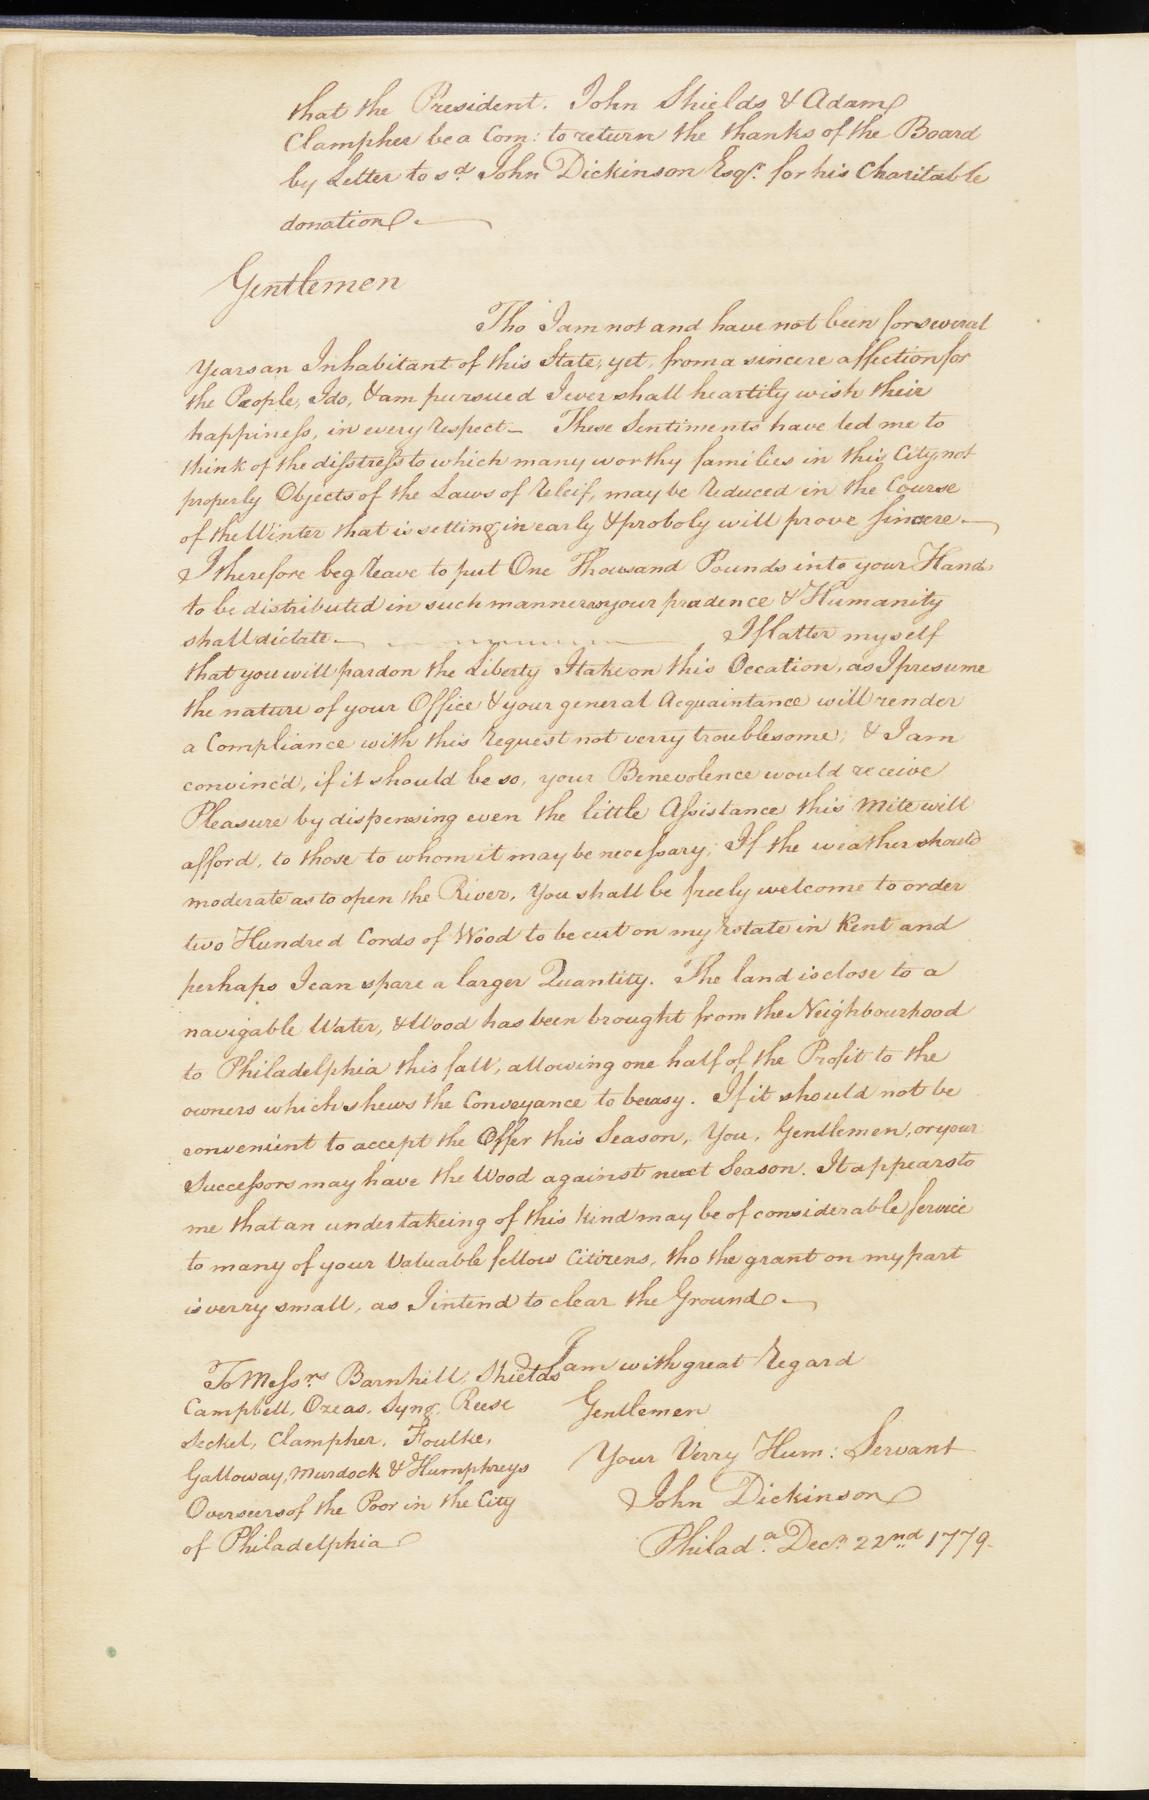 that the President. John Shields & Adam
Clampher be a Com: to return the thanks of the Board
by Letter to sd John Dickinson Esqr. for his Charitable
donation.
Gentlemen
Tho I am not and have not been for several
Years an Inhabitant of this State, yet, from a sincere affection for
the People, I do, & am pursued I ever shall heartily wish their
happiness, in every respect— These Sentiments have led me to
think of the disstress to which many worthy families in this City not
properly Objects of the Laws of releif, may be reduced in the Course
of the Winter that is setting in early & proboly will prove sincere.—
I therefore beg leave to put One Thousand Pounds into your Hands
to be distributed in such manner as your prudence & Humanity
shall dictate.— I flatter myself
that you will pardon the Liberty I take on this Occation, as I presume
the nature of your Office & your general Acquaintance will render
a Compliance with this request not verry troublesome; & I am
convinc'd, if it should be so, your Benevolence would receive
Pleasure by dispensing even the little Assistance this Mite will
afford, to those to whom it may be necessary; If the weather should
moderate as to open the River, You shall be freely welcome to order
two Hundred Cords of Wood to be cut on my Estate in Kent and
perhaps I can spare a larger Quantity. The land is close to a
navigable Water, & Wood has been brought from the Neighbourhood
to Philadelphia this fall, allowing one half of the Profit to the
owners which shews the Conveyance to be easy. If it should not be
convenient to accept the Offer this Season, You, Gentlemen, or your
Successors may have the Wood against next Season. It appears to
me that an undertakeing of this kind may be of considerable service
to many of your Valuable fellow Citizens, tho the grant on my part
is verry small, as I intend to clear the Ground.—
I am with great regard
To Messrs Barnhill, Shields
Campbell, Ozeas, Syng, Reese Gentlemen
Seckel, Clampher, Foulke,
Galloway, Murdock & Humphreys Your Verry Hum: Servant
Overseers of the Poor in the City John Dickinson
of Philadelphia Philada. Decr. 22nd 1779.